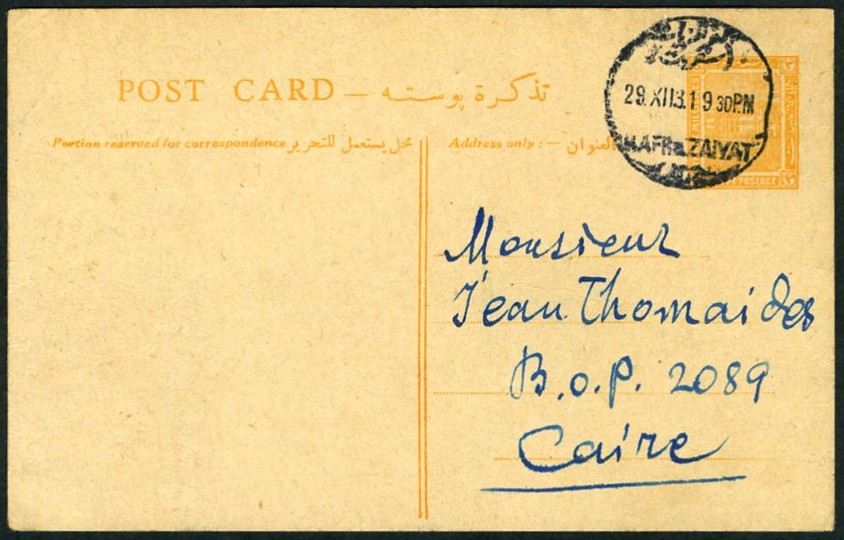 POST CARD — تذكرة بوسته
Portion reserved for correspondence محل يستعمل للتحرير
Address only : — العنوان
29.XII31 9 30PM
KAFR ZAIYAT
POSTAGE
Monsieur
Jean Thomaides
B.o.P. 2089
Caire